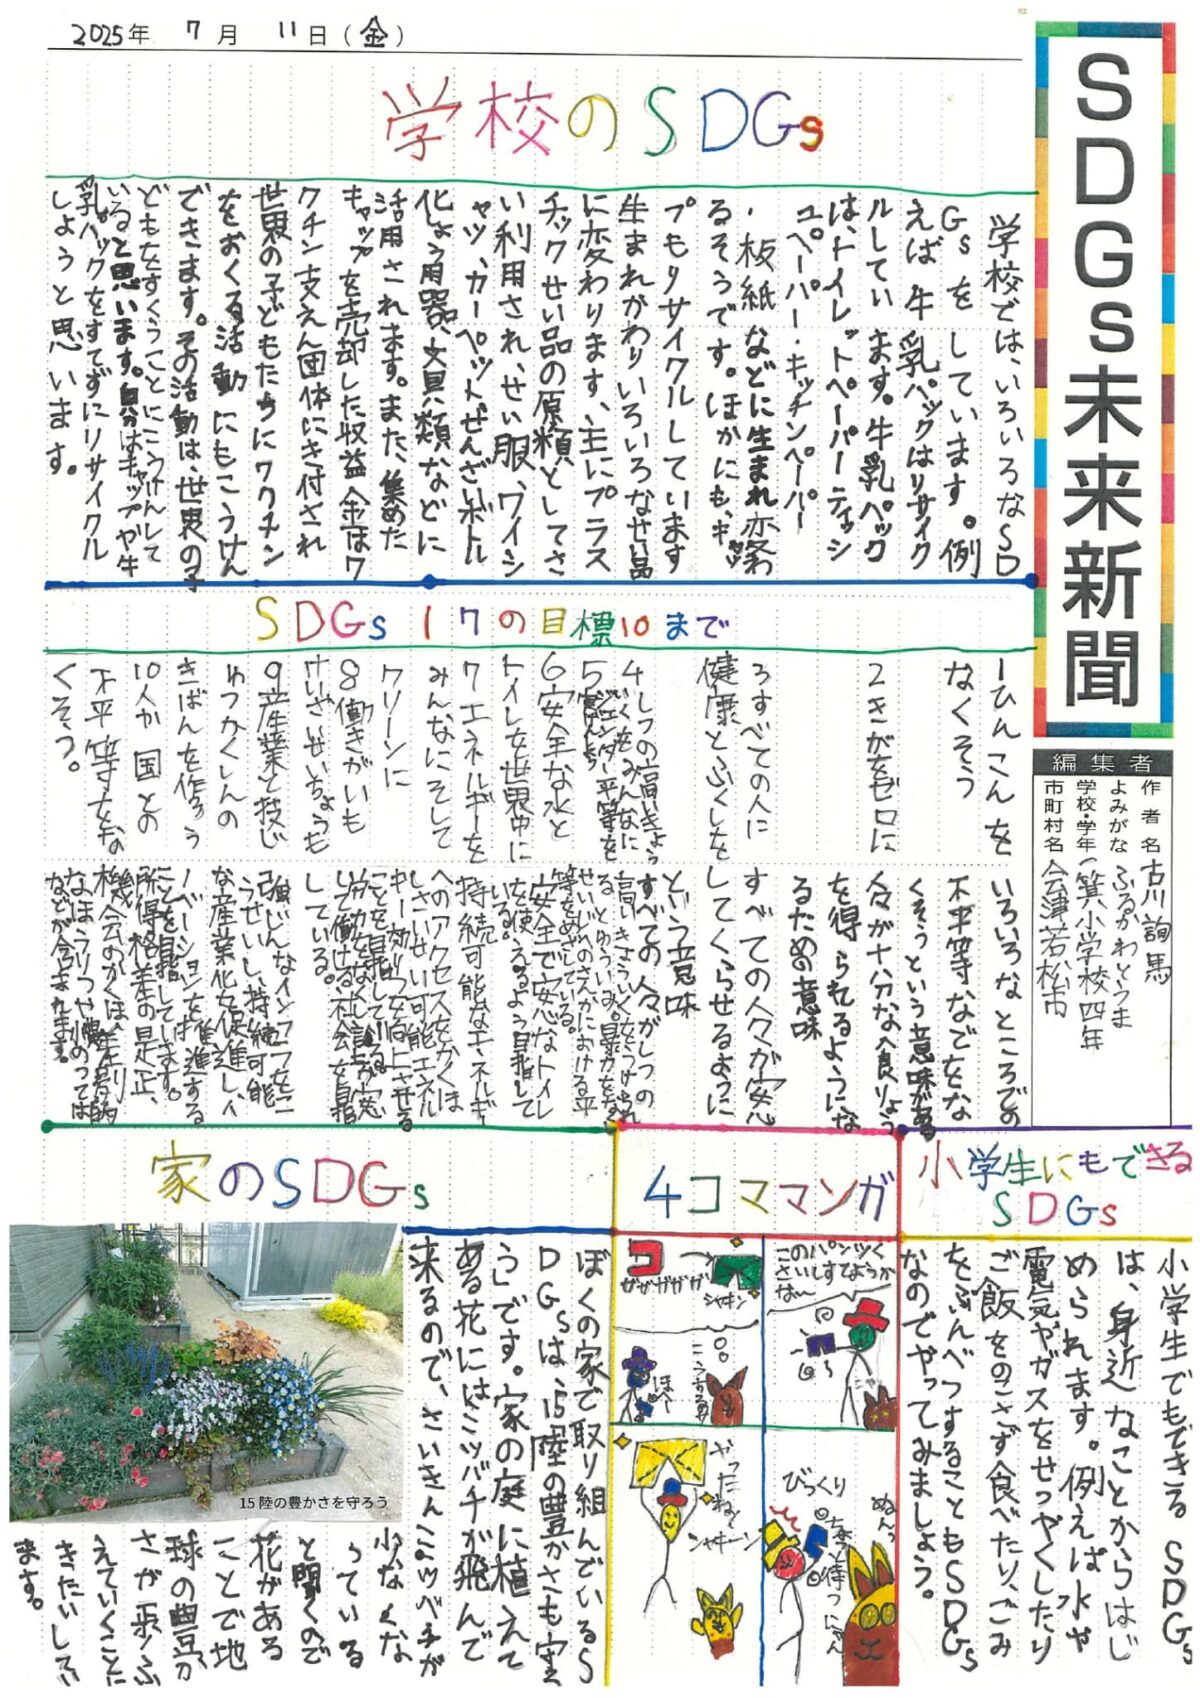 2025年 7月 11日(金)
SDGs未来新聞
編集者
作者名 古川詢馬
よみがな ふるかわとうま
学校・学年 一箕小学校四年
市町村名 会津若松市
学校のSDGs
学校では、いろいろなSD
Gsをしています。例
えば牛乳パックはリサイク
ルしています。牛乳パック
は、トイレットペーパーティッシ
ュペーパー・キッチンペーパー
・板紙などに生まれ変わ
るそうです。ほかにも、キャッ
プもリサイクルしています
生まれかわりいろいろなせい品
に変わります、主にプラス
チックせい品の原類としてさ
い利用され、せい服、ワイシ
ャツ、カーペットせんざいボトル
化しょう用器、文具類などに
活用されます。また、集めた
キャップを売却した収益金はワ
クチン支えん団体にき付され
世界の子どもたちにワクチン
をおくる活動にもこうけん
できます。その活動は、世界の子
どもをすくうことにこうけんして
いると思います。自分はキャップや牛
乳パックをすてずにリサイクル
しようと思います。
SDGs17の目標10まで
1ひんこんを
なくそう
2きがをゼロに
3すべての人に
健康とふくしを
4しつの高いきょう
いくをみんなに
5ジェンダー平等を
6安全な水と
トイレを世界中に
7エネルギーを
みんなにそして
クリーンに
8働きがいも
けいざいせいちょうも
9産業と技じ
ゅつかくしんの
きばんを作ろう
10人か国との
不平等をな
くそう。
いろいろなところでの
不平等なでをな
くそうという意味がある
人々が十分な食りょう
を得られるようにな
るための意味
すべての人々が安
してくらせるように
という意味
すべての人々がしつの
高いきょういくをうけられ
るとゆういみ。暴力をなく
せいじへのさんかにおける平
等をめざしている。
安全で安心なトイレ
を使えるよう目指して
いる。
持続可能なエネルギ
へのアクセスをかくほ
しさいせい可能エネル
ギー効りつを向上させる
ことを目指している
して働ける社会を目指
している。
強じんなインフラをこ
うせいし、持続可能
な産業化を促進し、イ
ノベーションを推進する
ことを目指しています。
所得格差の是正、
機会のかくほ、差別的
なほうりつや慣のてっぱい
などが含まれます。
家のSDGs
ぼくの家で取り組んでいるS
DGsは、15陸の豊かさも守
う」です。家の庭に植えて
ある花にはミツバチが飛んで
来るので、さいきんミツバチが
少なくな
っている
と聞くので
花がある
ことで地
球の豊か
さが黍ふ
えていくことに
きたいしてい
ます。
15 陸の豊かさを守ろう
4コママンガ
このパンツく
さいしすてようか
な〜
ザザザザザ
シャキン
こうするのサ
ほへー
びっくり
ちょっと待つにゃん
ぬんっ
やったね
シャキーン
小学生にもできる
SDGs
小学生でもできるSDGs
は、身近なことからはじ
められます。例えば水や
電気やガスをせつやくしたり
ご飯をのこさず食べたり、ごみ
をぶんべつすることもSDGs
なのでやってみましょう。